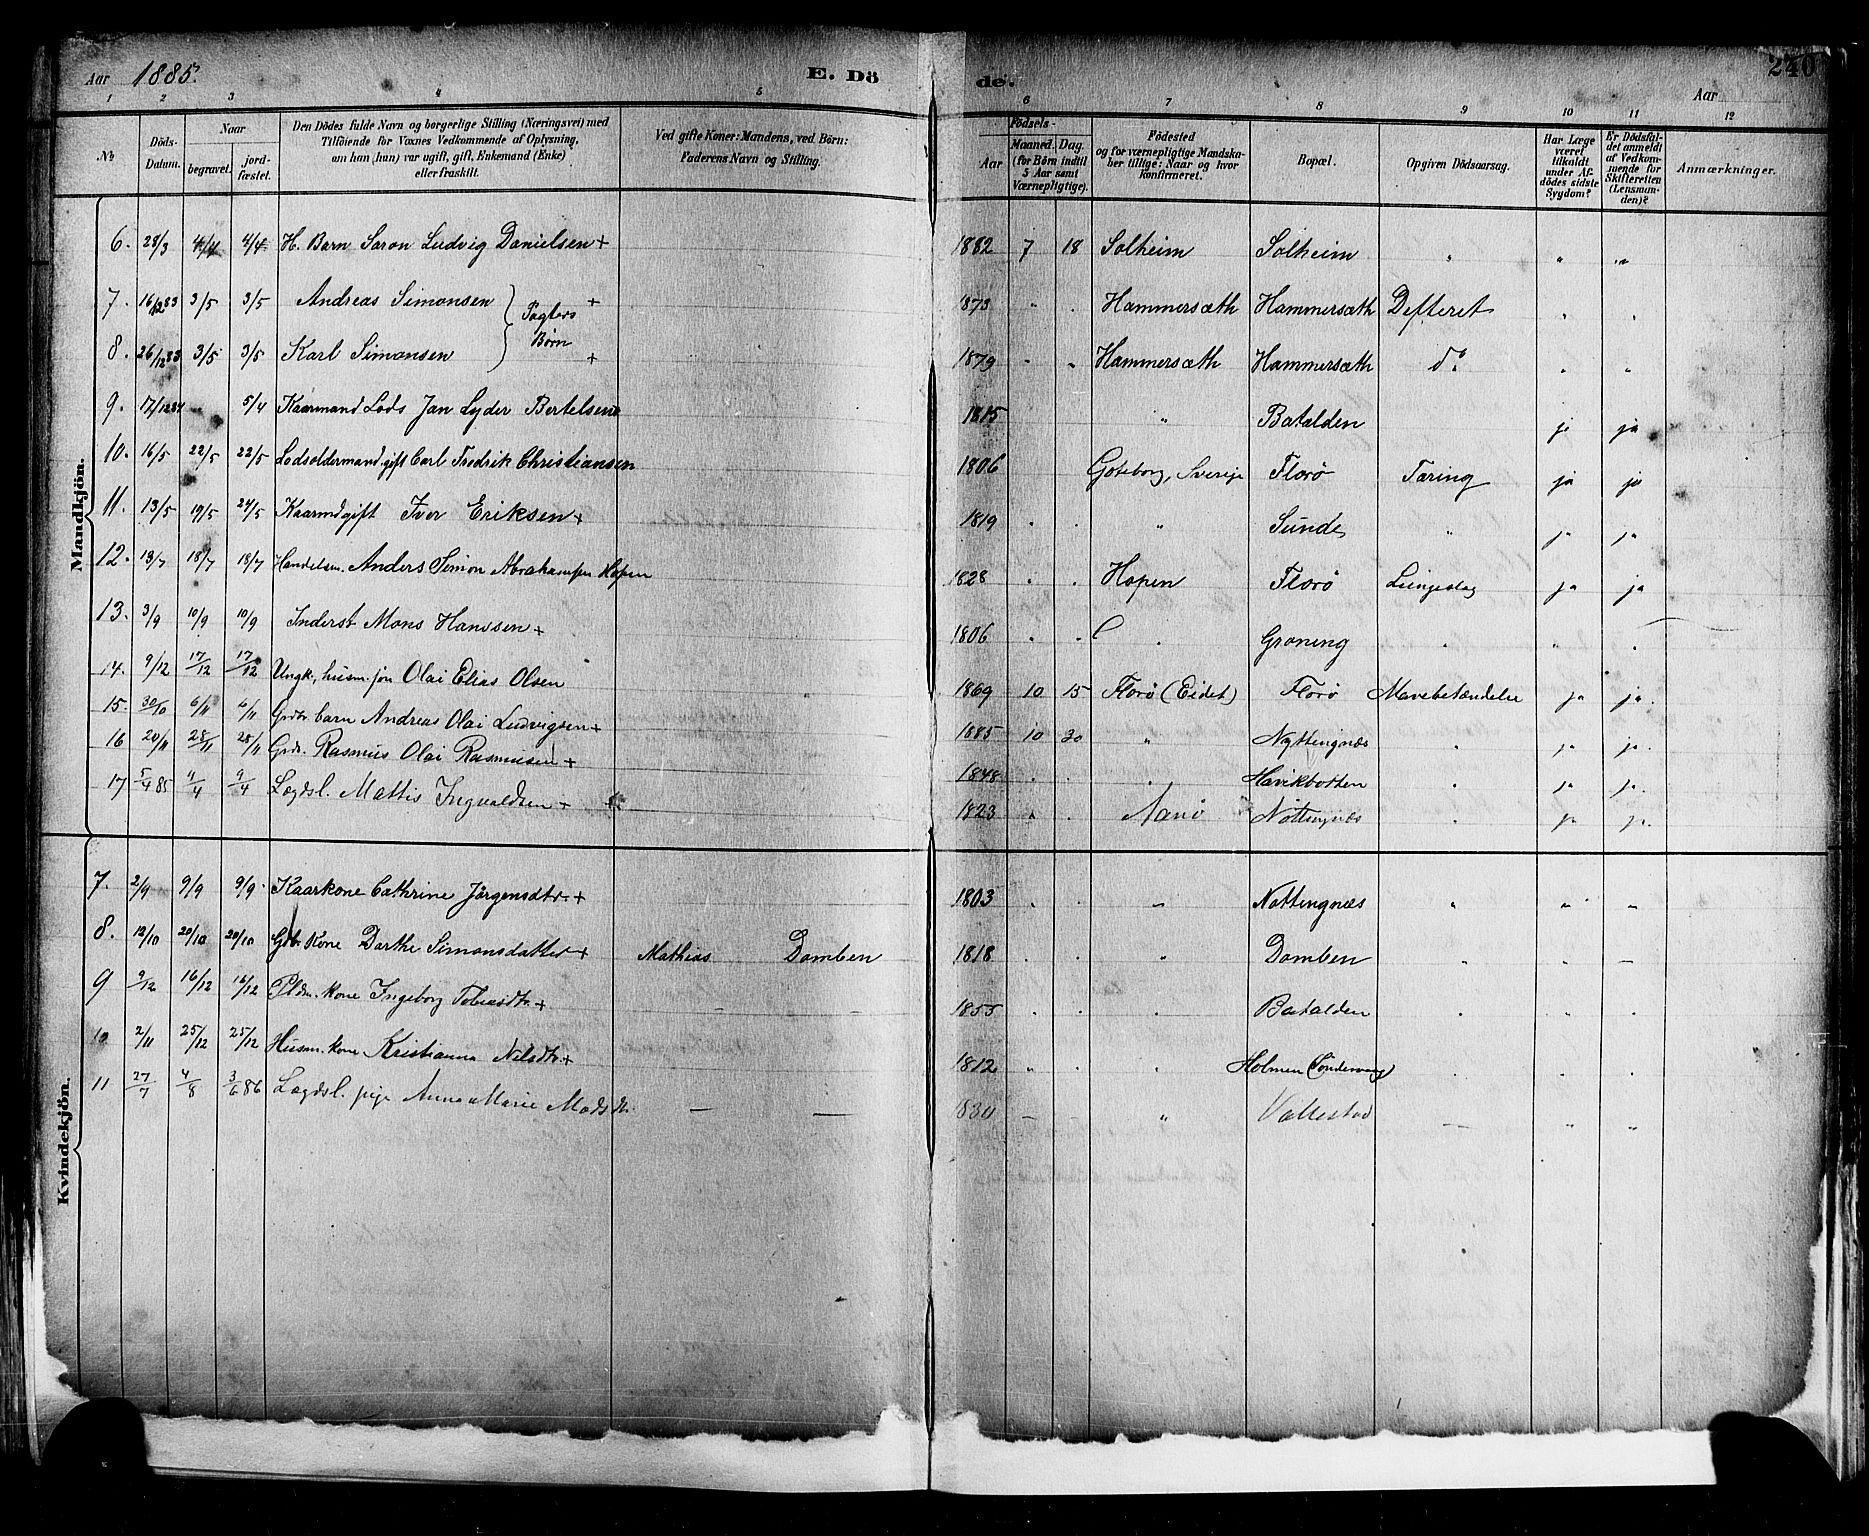 Aar 1885. E. Döde. 240
Aar
1 2 3 4 5 6 7 8 9 10 11 12
No.
Döds-Datum.
Naar
begravet.
jordfæstet.
Den Dödes fulde Navn og borgerlige Stilling (Næringsvei) med Tilföiende for Voxnes Vedkommende af Oplysning, om han (hun) var ugift, gift, Enkemand (Enke) eller fraskilt.
Ved gifte Koner: Mandens, ved Börn: Faderens Navn og Stilling.
Födsels-
Aar
Maaned. Dag.
(for Börn indtil 5 Aar samt Værnepligtige).
Födested og for værnepligtige Mandskaber tillige: Naar og hvor konfirmeret.
Bopæl.
Opgiven Dödsaarsag.
Har Læge været tilkaldt under Afdödes sidste Sygdom?
Er Dödsfaldet anmeldt af Vedkommende for Skifteretten (Lensmanden)?
Anmærkninger.
Mandkjön.
6. 28/3 4/4 4/4 H. Barn Saron Ludvig Danielsen + 1882 7 18 Solheim Solheim " " "
7. 16/12 83 3/5 3/5 Andreas Simonsen + 1873 " . Hammersæth Hammersæth Defteret " "
Börn
8. 26/12 83 3/5 3/5 Karl Simonsen + 1879 " " Hammersæth Hammersæth do " "
9. 17/12 84 5/4 Kaarmand Lods Jan Lyder Bertelsen 1815 " Batalden ja ja
10. 16/5 22/5 22/5 Lodsoldermand, gift Carl Fredrik Christiansen 1806 Göteborg, Sverige Florö Tæring ja ja
11. 13/5 19/5 24/5 Kaarmd gift Iver Eriksen + 1819 . . " Sunde " ja ja
12. 13/7 18/7 18/7 Handelsm. Anders Simon Abrahamsen Hopen 1828 . . Hopen Florö Lungeslag ja ja
13. 3/9 10/9 10/9 Inderst Mons Hanssen + 1806 . . . Groning . " .
14. 9/12 17/12 17/12 Ungk., husm. sön Olai Elias Olsen 1869 10 15 Florö (Eidet) Florö Mavebetændelse ja ja.
15. 30/10 6/11 6/11 Grdbr barn Andreas Olai Ludvigsen + 1885 10 30 " Nyttingnæs . ja ja.
16 20/11 28/11 28/11 Grdr. Rasmus Olai Rasmussen + 1848 . . " Havikbotten . ja ja.
17 5/4 85 9/4 9/4 Lægdsl. Mattis Ingvaldsen + 1823 " . Nærö Nöttingnæs . ja ja.
Kvindekjön.
7. 2/9 9/9 9/9. Kaarkone Cathrine Jörgensdtr. + 1803 . . " Nöttingnæs " " "
8. 12/10 20/10 20/10 Gbr. Kone Darthe Simonsdatter + Mathias Domben 1818 . . " Domben " " —
9 9/12 16/12 16/12 kone Ingeborg Tobiasdtr. + — — 1855 . . " Batalden . . .
10 2/11 25/12 25/12 Husm. kone Kristianna Nilsdtr. + 1812 " . " Holmen . . .
11 27/7 4/8 3/6 86 Lægdsl. pige Anna Marie Madsdtr. — — — " Vallestad — " "